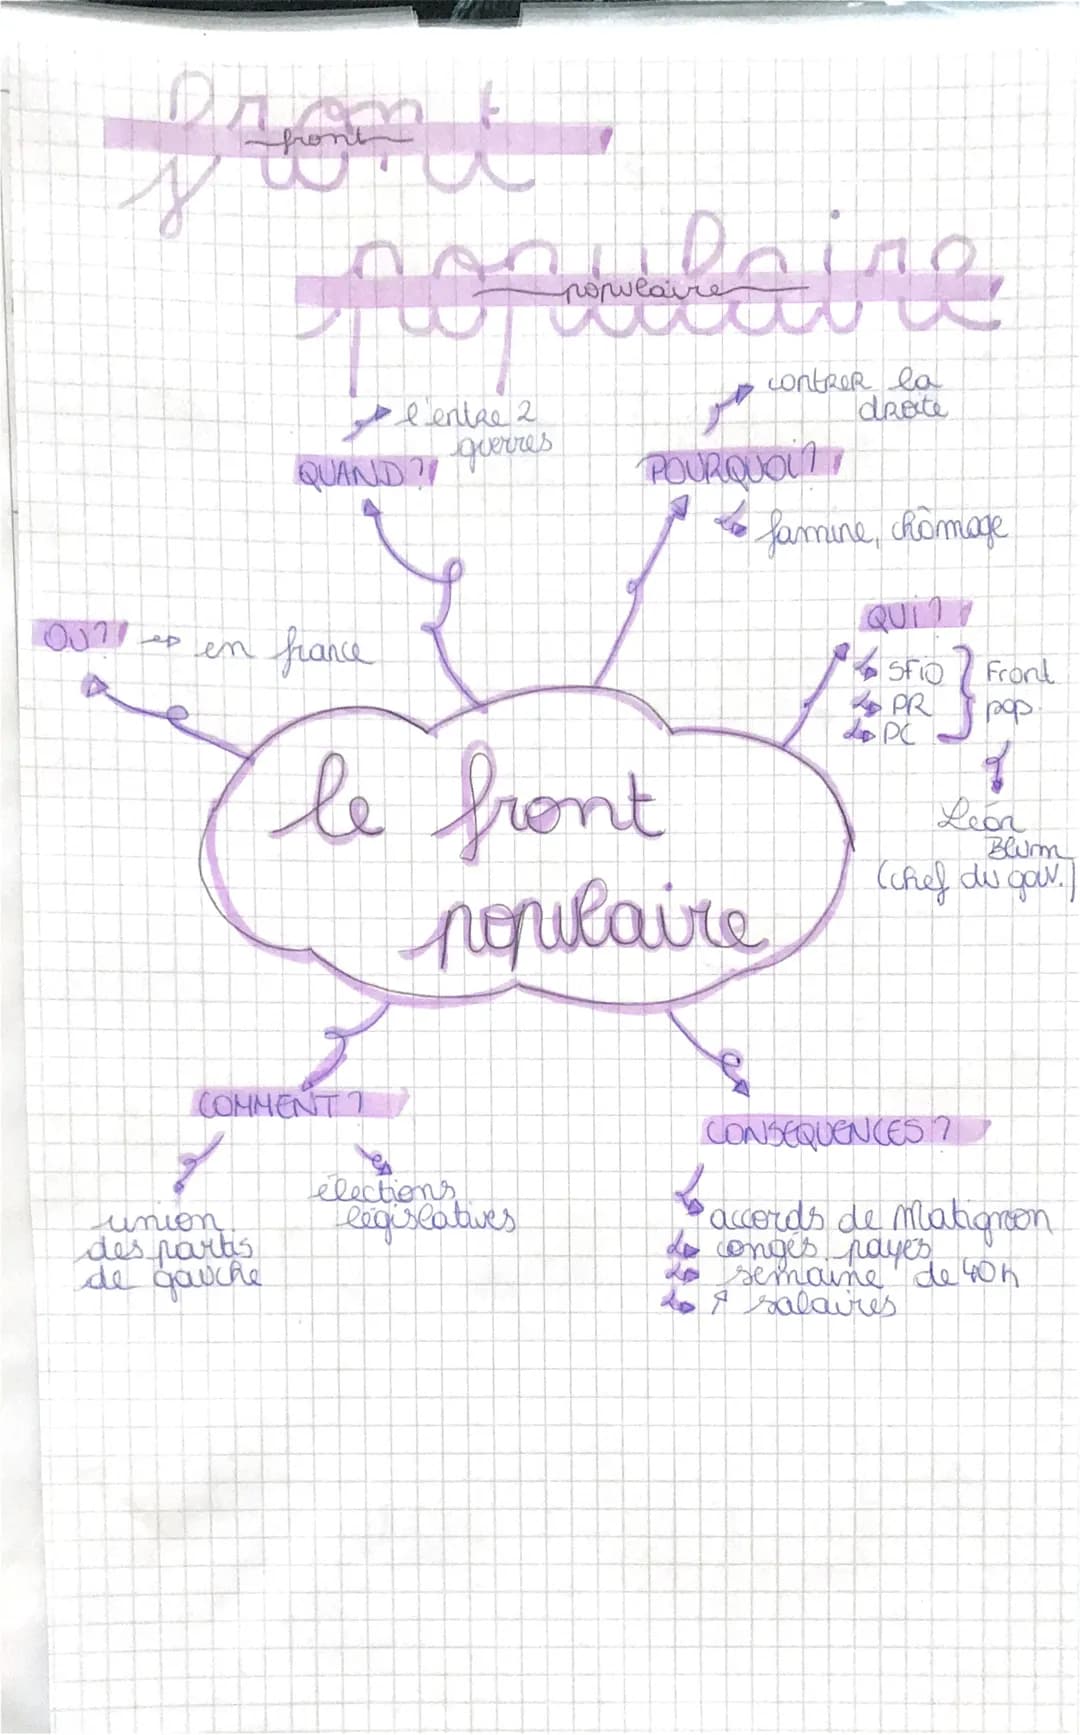 front
front
populaire
populaire
QUAND ?
l'entre 2
guerres
POURQUOI ?
contrer la
droite
famine, chômage
OU ? en france
QUI ?
SFIO
PR
PC
Front
pop.
Léon
Blum
(chef du gouv.)
le front
populaire
COMMENT ?
union
des partis
de gauche
élections
législatives
CONSEQUENCES ?
accords de Matignon
congés payés
semaine de 40h
↗ salaires